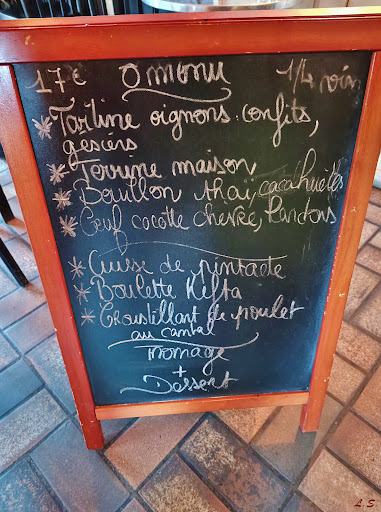 17€ Ô menu 1/4 vin
* Tartine oignons confits,
gésiers
* Terrine maison
* Bouillon thaï, cacahuètes
* Oeuf cocotte chèvre, lardons
* Cuisse de pintade
* Boulette Kefta
* Croustillant de poulet
au cantal
Fromage
+
Dessert
L.S.